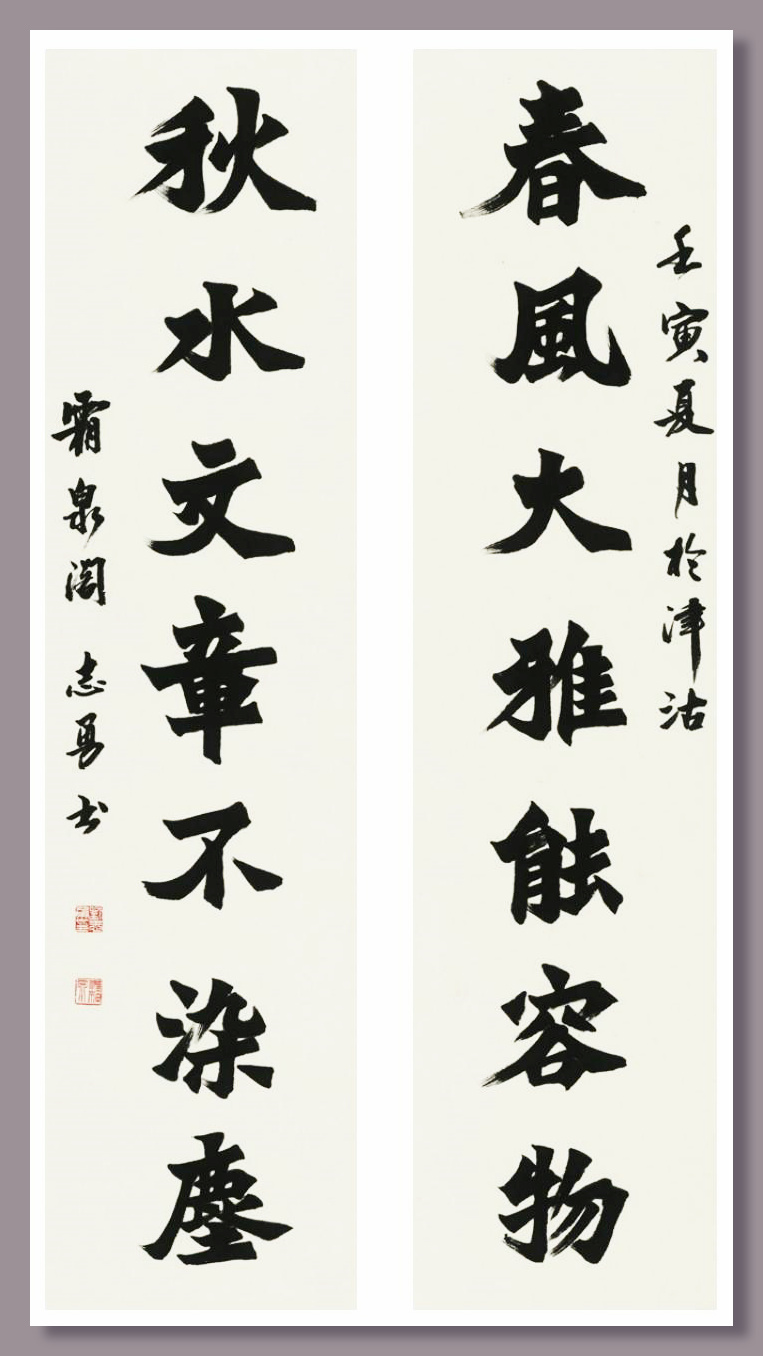 壬寅夏月於津沽
春風大雅能容物
秋水文章不染塵
霜泉閣 志勇书